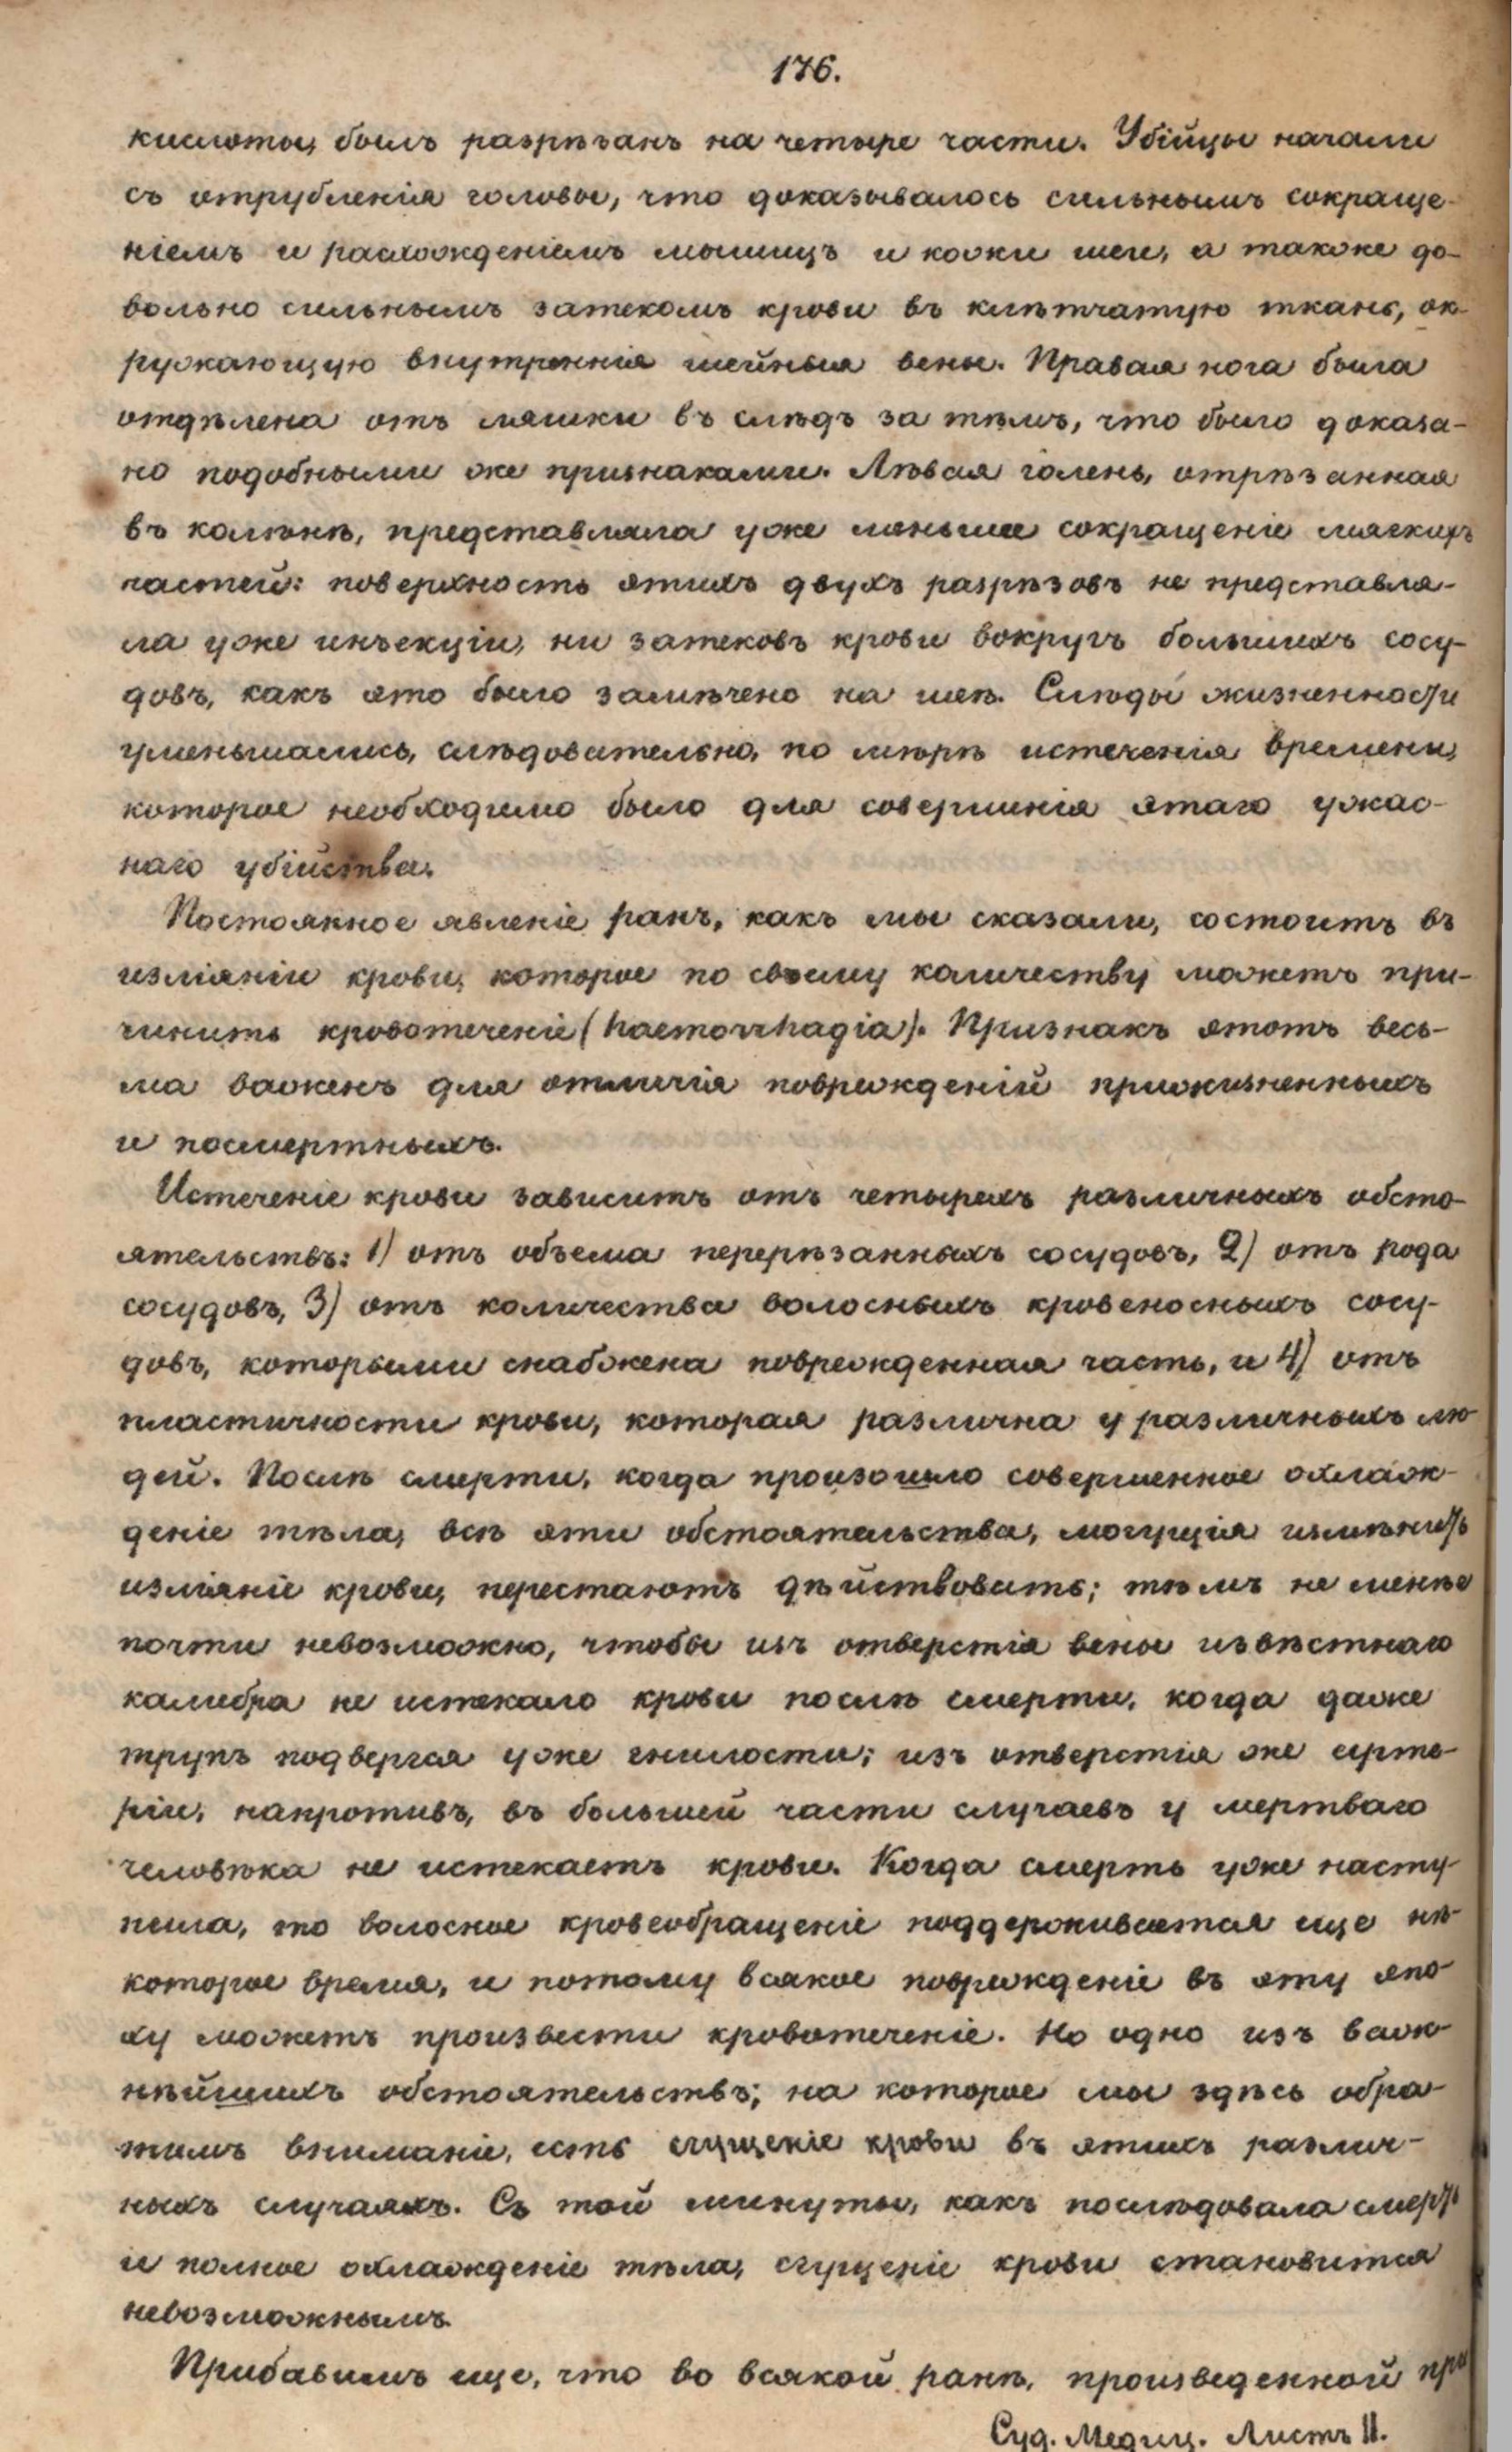 176.
кислоты, былъ разрѣзанъ на четыре части. Убійцы начали
съ отрубленія головы, что доказывалось сильнымъ сокраще-
ніемъ и расхожденіемъ мышицъ и кожи шеи, а также до-
вольно сильнымъ затекомъ крови въ клѣтчатую ткань, ок-
ружающую внутреннія шейныя вены. Правая нога была
отдѣлена отъ ляшки въ слѣдъ за тѣмъ, что было доказа-
но подобными же признаками. Лѣвая голень, отрѣзанная
въ колѣнѣ, представляла уже меньшее сокращеніе мягкихъ
частей: поверхность этихъ двухъ разрѣзовъ не представля-
ла уже инъекціи, ни затековъ крови вокругъ большихъ сосу-
довъ, какъ это было замѣчено на шеѣ. Слѣды жизненности
уменьшались, слѣдовательно, по мѣрѣ истеченія времени,
которое необходимо было для совершенія этаго ужас-
наго убійства.
Постоянное явленіе ранъ, какъ мы сказали, состоитъ въ
изліяніи крови, которое по своему количеству можетъ при-
чинить кровотеченіе (haemorrhagia). Признакъ этотъ весь-
ма важенъ для отличія поврежденій прижизненныхъ
и посмертныхъ.
Истеченіе крови зависитъ отъ четырехъ различныхъ обсто-
ятельствъ: 1) отъ объема перерѣзанныхъ сосудовъ, 2) отъ рода
сосудовъ, 3) отъ количества волосныхъ кровеносныхъ сосу-
довъ, которыми снабжена поврежденная часть, и 4) отъ
пластичности крови, которая различна у различныхъ лю-
дей. Послѣ смерти, когда произошло совершенное охлаж-
деніе тѣла, всѣ эти обстоятельства, могущія измѣнить
изліяніе крови, перестаютъ дѣйствовать; тѣмъ не менѣе
почти невозможно, чтобы изъ отверстія вены извѣстнаго
калибра не истекало крови послѣ смерти, когда даже
трупъ подвергся уже гнилости; изъ отверстія же арте-
ріи, напротивъ, въ большей части случаевъ у мертваго
человѣка не истекаетъ крови. Когда смерть уже насту-
пила, то волосное кровеобращеніе поддерживается еще нѣ-
которое время, и потому всякое поврежденіе въ эту эпо-
ху можетъ произвести кровотеченіе. Но одно изъ важ-
нѣйшихъ обстоятельствъ; на которое мы здѣсь обра-
тимъ вниманіе, есть сгущеніе крови въ этихъ различ-
ныхъ случаяхъ. Съ той минуты, какъ послѣдовала смерть
и полное охлажденіе тѣла, сгущеніе крови становится
невозможнымъ.
Прибавимъ еще, что во всякой ранѣ, произведенной при
Суд. Медиц. Листъ 11.